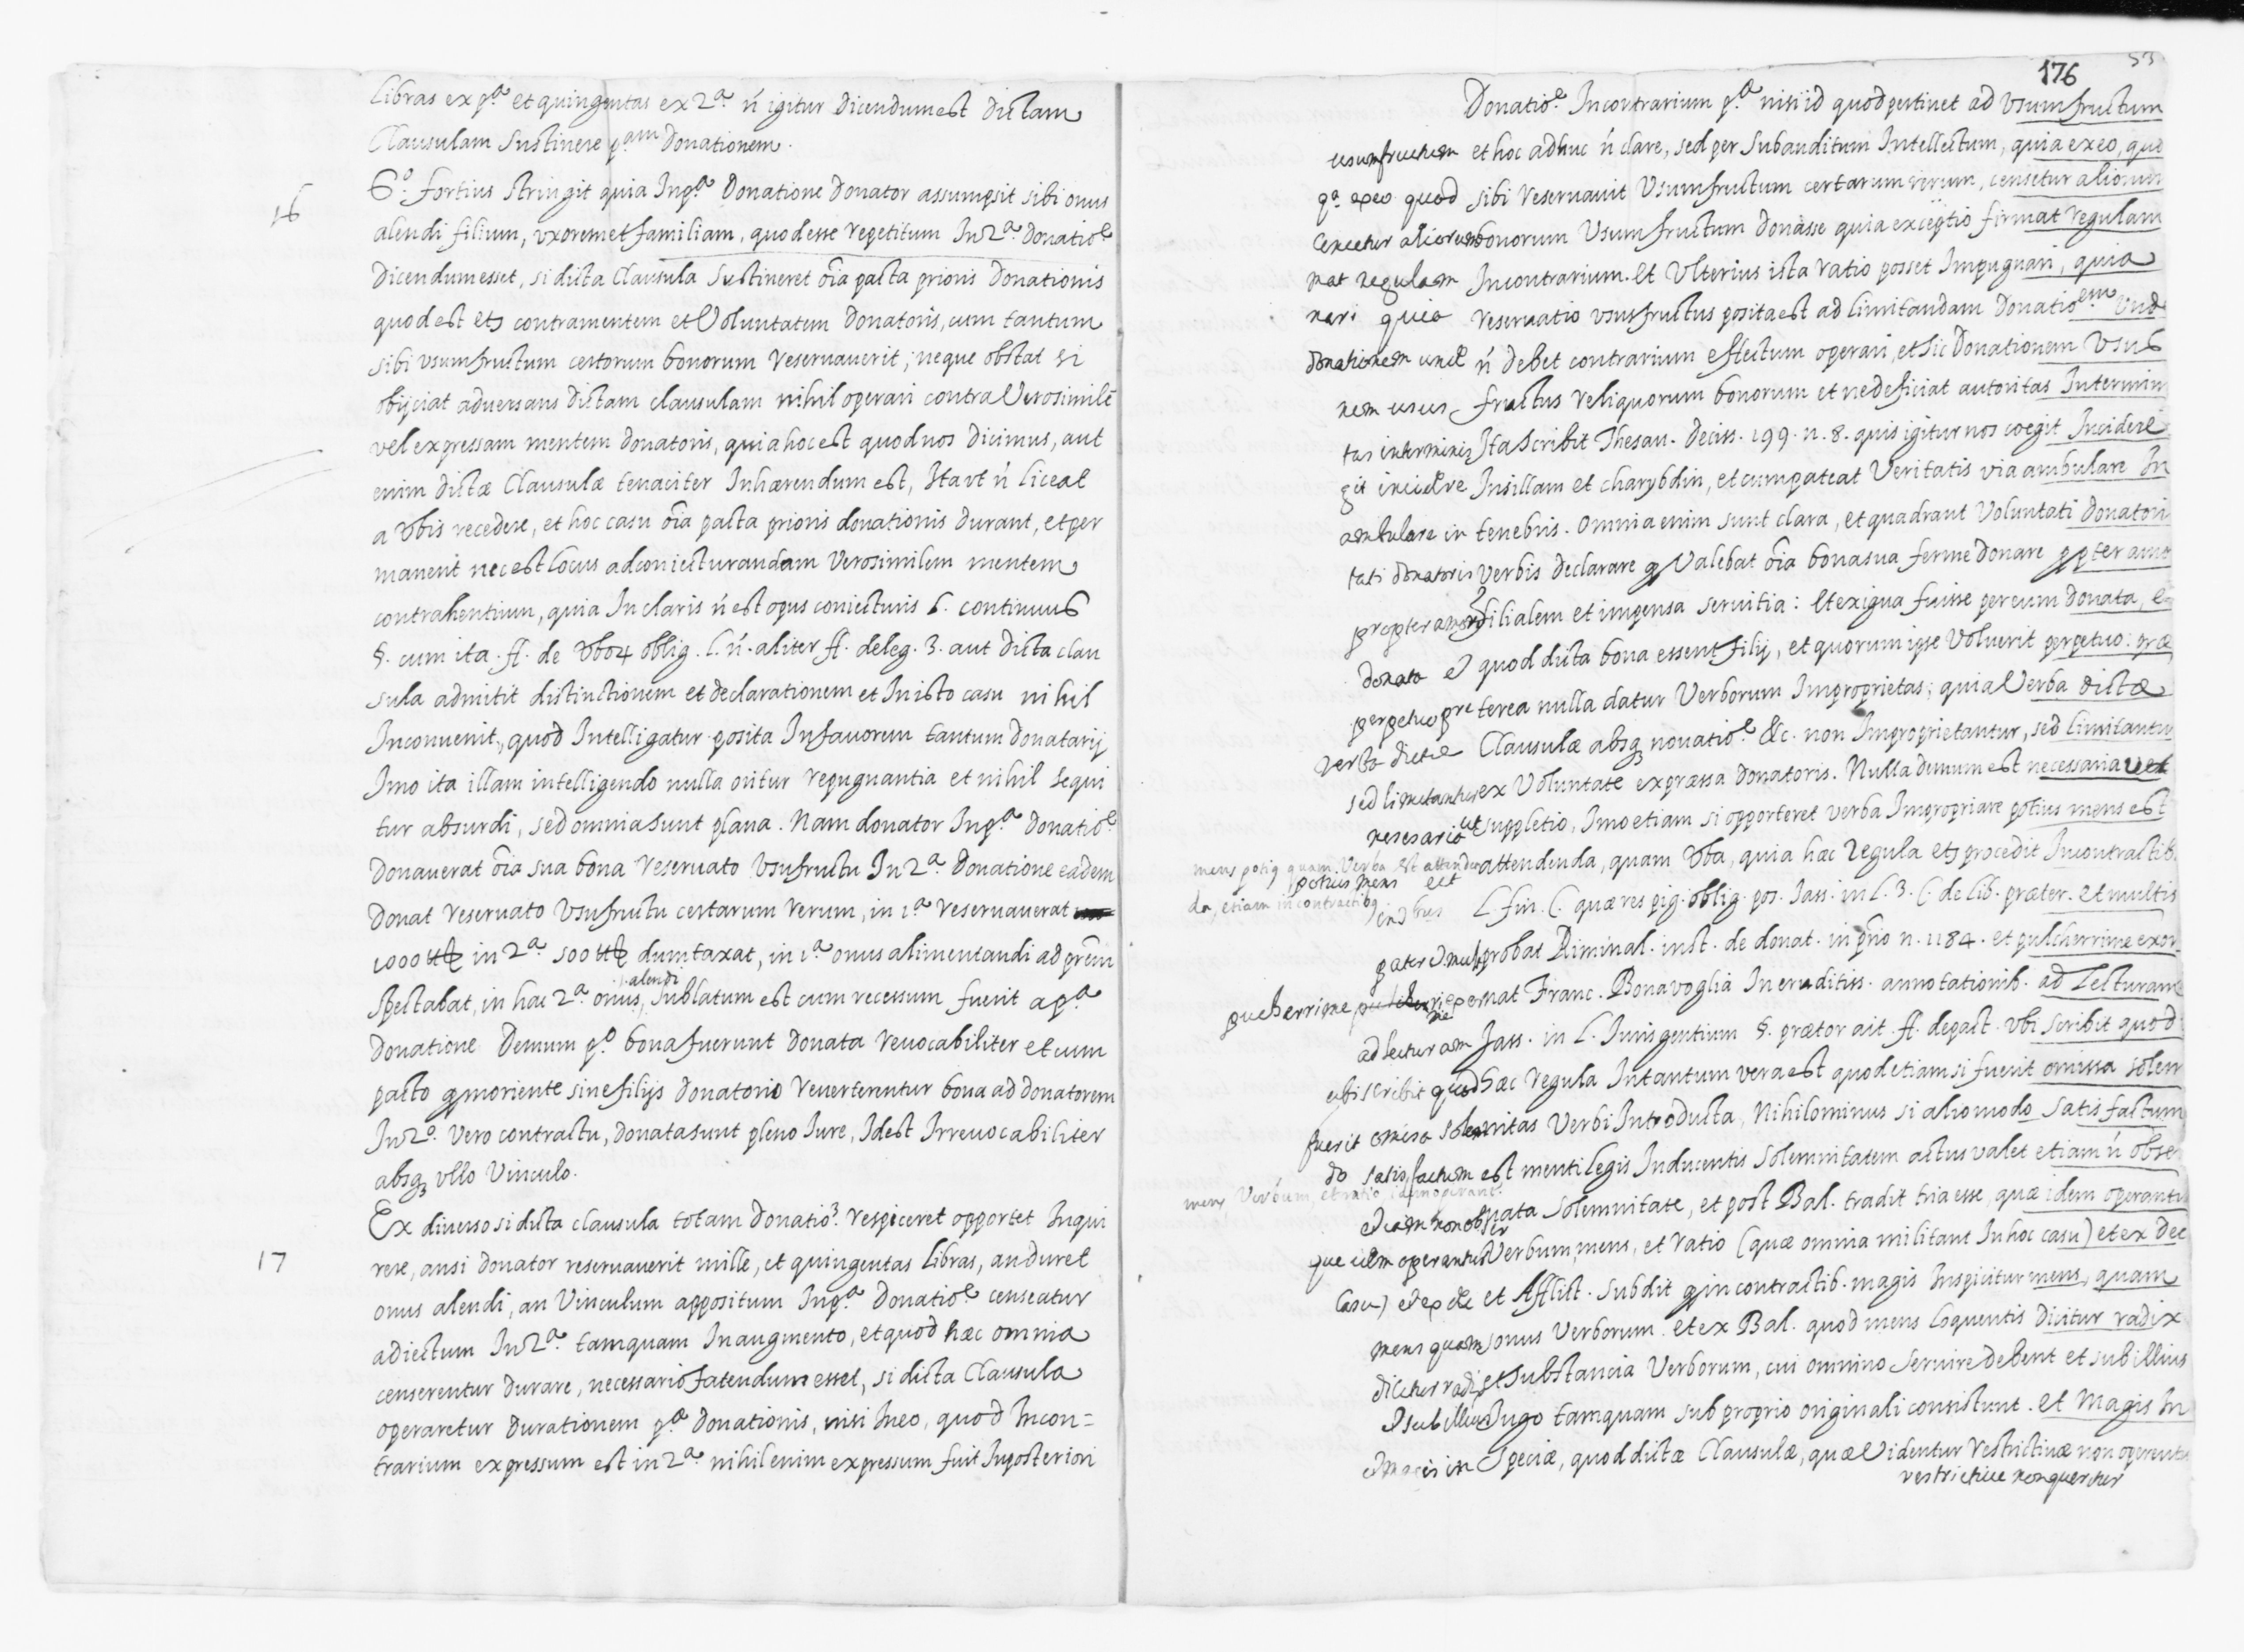 Libras ex p.ª et quingentas ex 2.ª ń igitur Dicendum est dictam
Clausulam Sustinere p.am Donationem.
16
6.º fortius stringit quia In p.ª Donatione Donator assumpsit sibi onus
alendi filium, uxorem et familiam, quod esse repetitum In 2.ª donatio.e
Dicendum esset, si dicta Clausula Sustineret oĩa pacta prioris Donationis
quod est etȝ contra mentem et Voluntatem Donatoris, cum tantum
sibi usumfructum certorum bonorum reservaverit, neque obstat si
obijciat adversans dictam clausulam nihil operari contra Verosimilē
vel expressam mentem donatoris, quia hoc est quod nos dicimus, aut
enim dictæ Clausulæ tenaciter Inhærendum est, Ita ut ń liceat
a vbis recedere, et hoc casu oĩa pacta prioris donationis durant, et per
manent nec est locus ad coniecturandam verosimilem mentem
contrahentium, quia In claris ń est opus coniecturis l. continuus
§. cum ita. ff. de vbo4 oblig. l. ń. aliter ff. de leg. 3. aut dicta clau
sula admitit distinctionem et declarationem et In isto casu nihil
Inconvenit, quod Intelligatur posita In favorem tantum Donatarij
Imo ita illam intelligendo nulla oritur repugnantia et nihil sequi
tur absurdi, sed omnia sunt plana. Nam donator In p.ª Donatio.e
Donaverat oĩa sua bona reservato Usufructu In 2.ª Donatione eadem
Donat reservato Usufructu certarum rerum, in 1.ª reservaverat
1000 ₶ in 2.ª 500 ₶ dumtaxat, in 1.ª onus alimentandi ad p̃rem
alendi
spectabat, in hac 2.ª onus, sublatum est cum recessum fuerit a p.ª
Donatione Demum p.º bona fuerunt Donata revocabiliter et cum
pacto q moriente sine filijs Donatorio reverterentur bona ad donatorem
In 2.º vero contractu, donata sunt pleno Iure, Id est Irrevocabiliter
absqȝ ullo Vinculo.
17
Ex diverso si dicta clausula totam Donatio.3 respiceret opportet Inqui
rere, an si donator reservaverit mille, et quingentas libras, an duret
onus alendi, an Vinculum appositum In p.ª Donatio.e censeatur
adiectum In 2.ª tamquam In augmento, et quod hæc omnia
censerentur durare, necessario fatendum esset, si dicta Clausula
operaretur Durationem p.ª donationis, nisi In eo, quod Incon=
trarium expressum est in 2.ª nihil enim expressum fuit In posteriori
176
53
Donatio.e In contrarium p.ª nisi id quod pertinet ad Usumfructum
usumfructum et hoc adhuc ń clare, sed per Subauditum Intellectum, quia ex eo, quo
q.ª ex eo quod sibi reservavit Usumfructum certarum rerum, censetur aliorum
cencetur aliorum bonorum Usumfructum donasse quia exceptio firmat regulam
mat regulam In contrarium. Et Ulterius ista ratio posset Impugnari, quia
nari quia reservatio ususfructus posita est ad limitandam Donatio.em Und
donationem unde ń debet contrarium effectum operari, et sic Donationem Usus
nem usus fructus reliquorum bonorum et ne deficiat autoritas In termin
tas interminis Ita Scribit Thesau. Deciss. 199. n. 8. quis igitur nos coegit Incidere
git incidere In sillam et charybdin, et cum pateat Veritatis via ambulare In
ambulare in tenebris. Omnia enim sunt clara, et quadrant Voluntati Donatori
tati donatoris Verbis declarare q Valebat oĩa bona sua ferme Donare ppter amo
propter amorem filialem et impensa servitia: et exigua fuisse per eum donata, e
donata & quod dicta bona essent filij, et quorum ipse voluerit perpetuo: præ
perpetuo pre terea nulla datur Verborum Improprietas; quia Verba dictæ
verba dicte Clausulæ absqȝ novatio.e &c. non Improprietantur, sed limitantu
sed limitantur ex Voluntate expræssa donatoris. Nulla demum est necessaria vet
nesesaria ut suppletio, Imo etiam si opporteret verba Impropriare potius mens est
mens potiq quam Verba est attenden attendenda, quam Vba, quia hæc Regula etȝ procedit In contractib.
potius mens est
da, etiam in contractibq. L. fin. C. quæ res pig. oblig. pos. Jass. in L. 3. C. de lib. præter. Et multis
pater & mult probat Riminal. inst. de donat. in prĩo n. 1184. et pulcherrime exor
pucherrime exornat Franc. Bonavoglia In eruditiss. annotationib. ad Lecturam
ad lecturam Jass. in L. Iurisgentium §. prætor ait. ff. de pact. Ubi scribit quod
ubi scribit quod hæc regula In tantum vera est quod etiam si fuerit omissa solem
fuerit omisa solemnitas Verbi Introducta, Nihilominus si alio modo Satis factum
do satis factum est menti legis Inducentis Solemnitatem actus valet etiam ń obse
mens Verbum, et ratio idem operant.
etiam non obser vata Solemnitate, et post Bal. tradit tria esse, quæ idem operantu
que idem operantur Verbum, mens, et ratio (quæ omnia militant In hoc casu) et ex dec
casu) & ex dec et Afflict. subdit q in contractib. magis Inspicitur mens, quam
mens quam sonus Verborum. et ex Bal. quod mens loquentis dicitur radix
dicitur radix et Substancia Verborum, cui omnino Servire debent et sub illius
& sub illius Iugo tamquam sub proprio originali consistunt. et Magis In
& magis in Speciæ, quod dictæ Clausulæ, quæ Videntur Restrictivæ non operentu
restrictive non